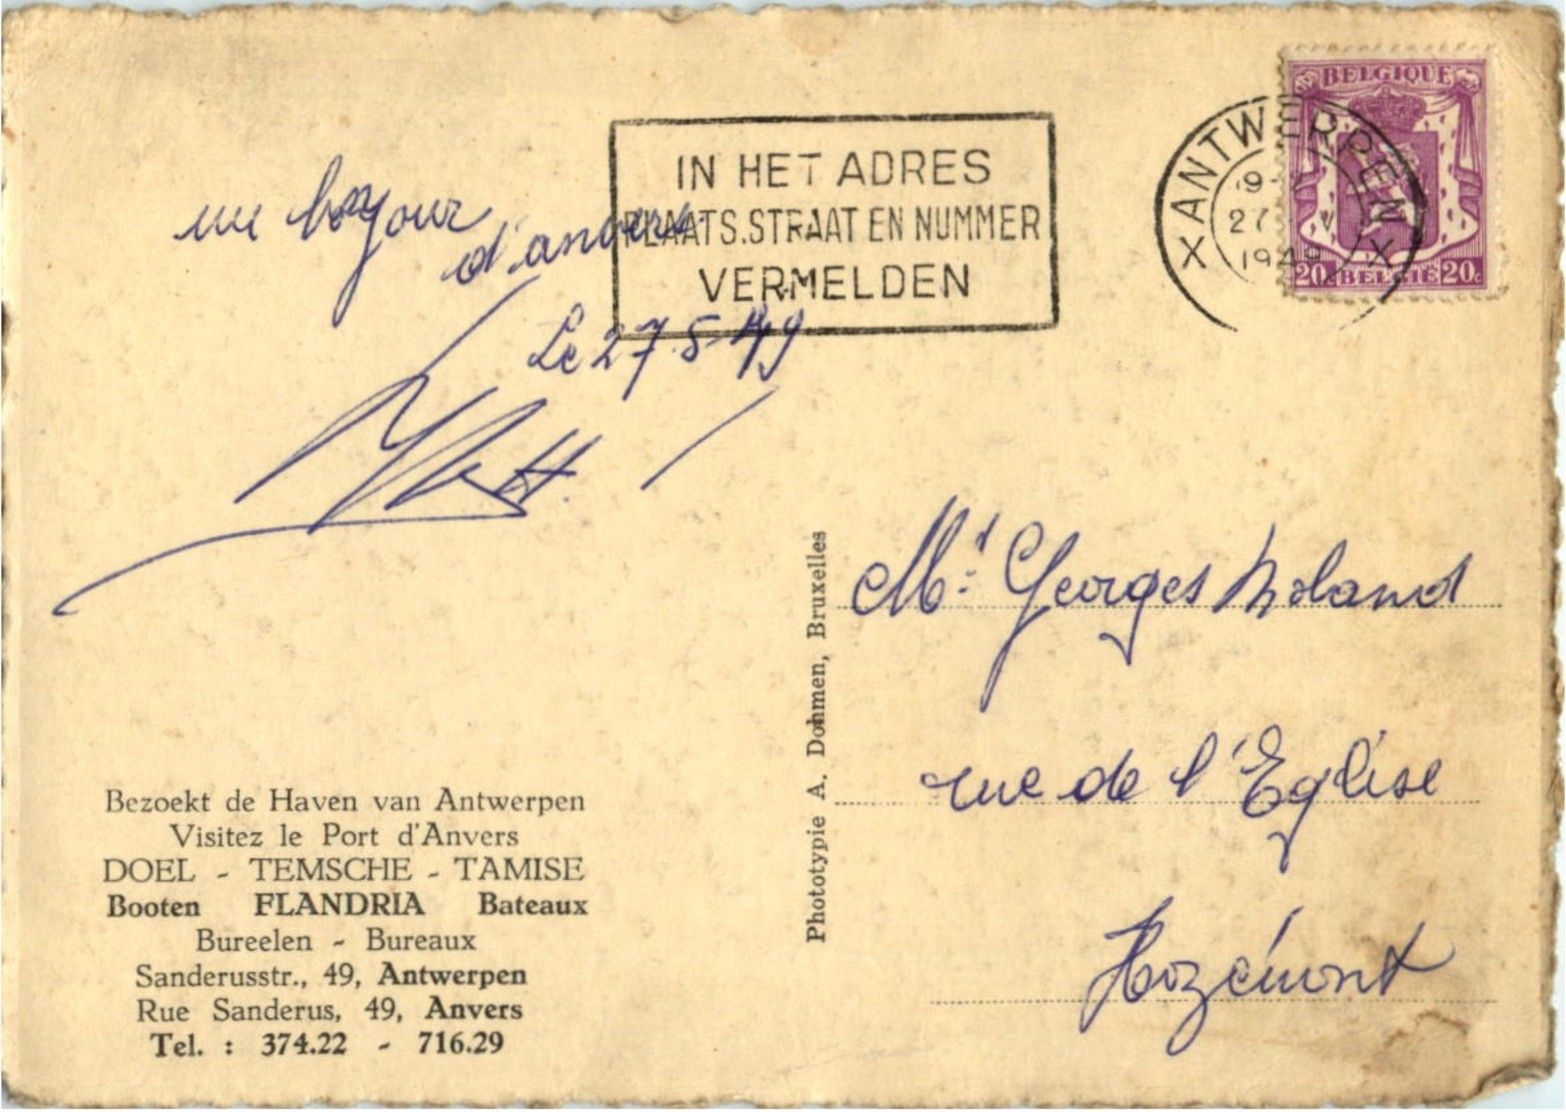 un bonjour
d'anvers
Le 27-5-49
IN HET ADRES
PLAATS.STRAAT EN NUMMER
VERMELDEN
X ANTWERPEN X
27
1949
BELGIQUE
20c BELGIË 20c
Mr Georges Noland
rue de l'Eglise
Hozémont
Phototypie A. Dohmen, Bruxelles
Bezoekt de Haven van Antwerpen
Visitez le Port d'Anvers
DOEL - TEMSCHE - TAMISE
Booten FLANDRIA Bateaux
Bureelen - Bureaux
Sanderusstr., 49, Antwerpen
Rue Sanderus, 49, Anvers
Tel. : 374.22 - 716.29